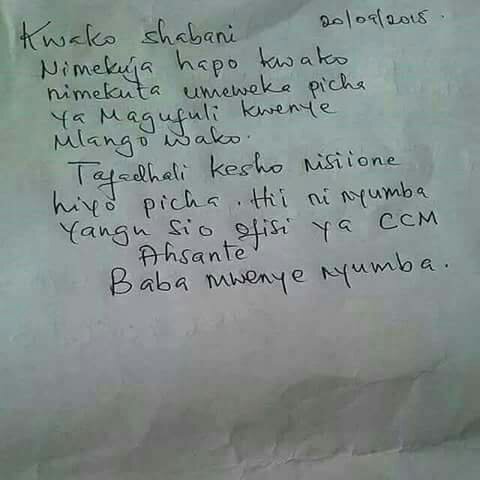 20/09/2015.
Kwako shabani
Nimekuja hapo kwako
nimekuta umeweka picha
ya Magufuli kwenye
Mlango wako.
Tafadhali kesho nisiione
hiyo picha. Hii ni nyumba
Yangu sio ofisi ya CCM
Ahsante
Baba mwenye nyumba.